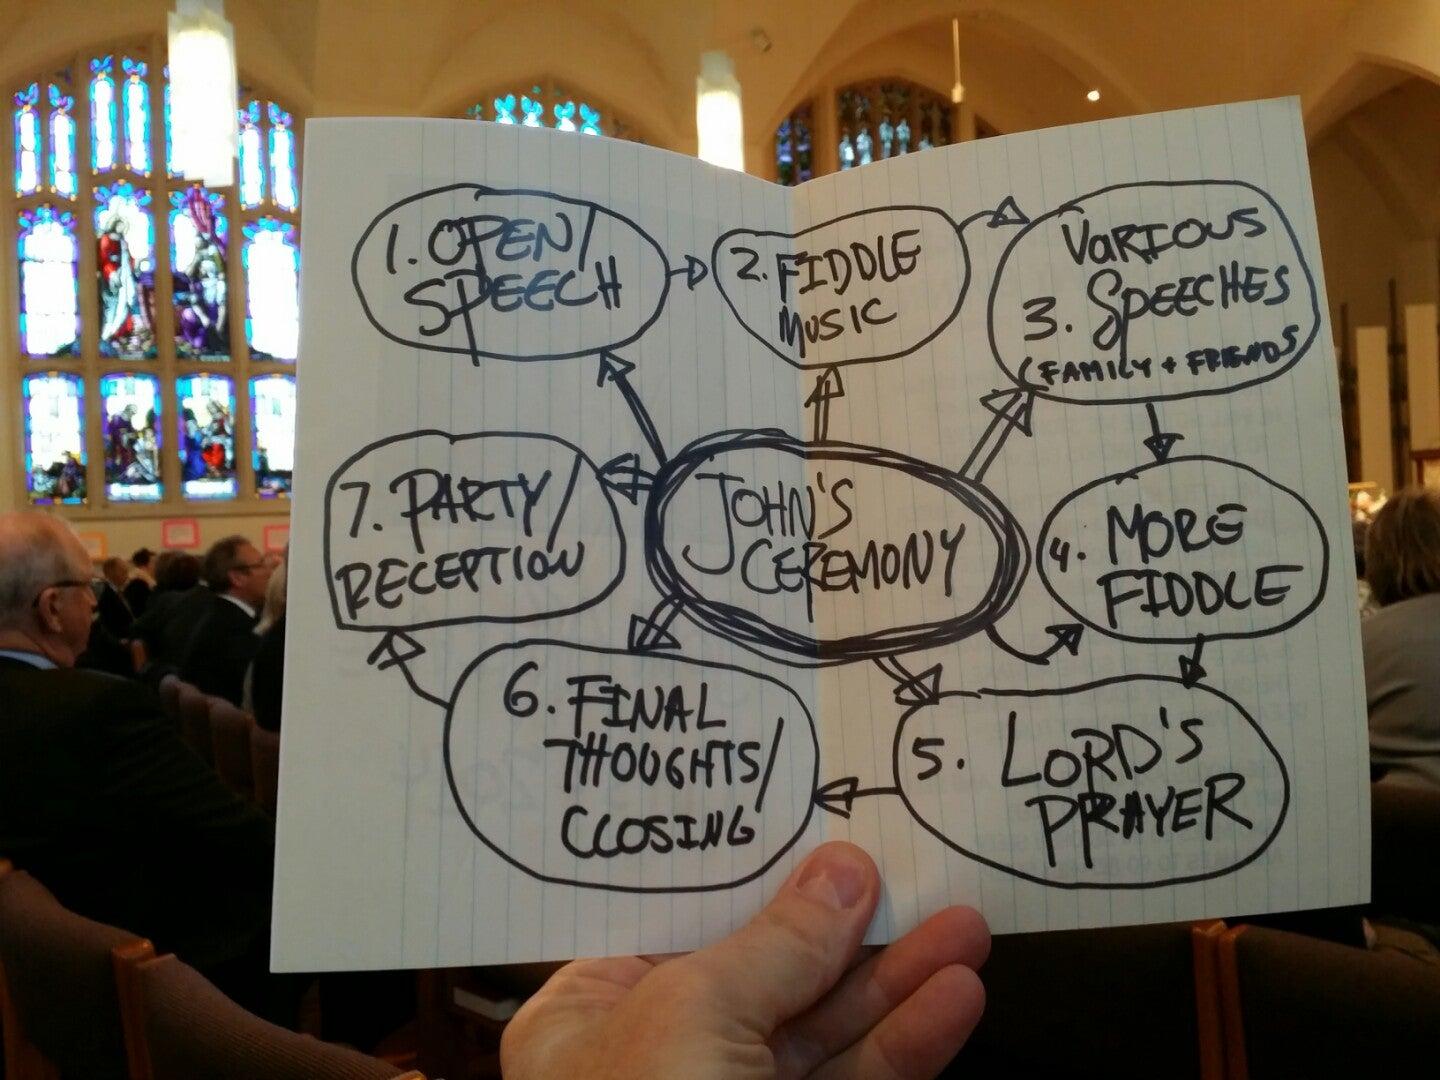 1. OPEN/
SPEECH
2. FIDDLE
MUSIC
VARIOUS
3. SPEECHES
(FAMILY + FRIENDS
4. MORE
FIDDLE
5. LORD'S
PRAYER
6. FINAL
THOUGHTS/
CLOSING
7. PARTY/
RECEPTION
JOHN'S
CEREMONY